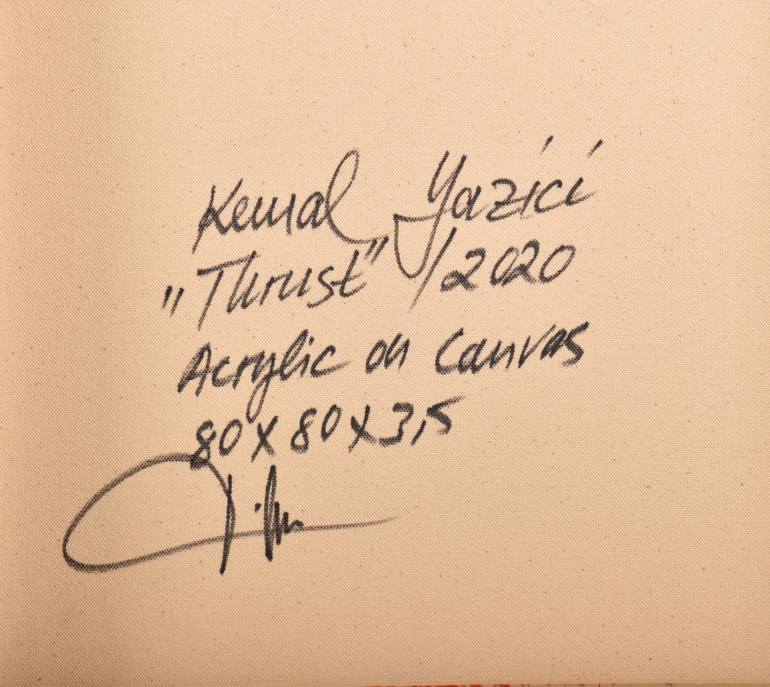 Kemal Yazici
"Thrust" /2020
Acrylic on Canvas
80 x 80 x 3,5